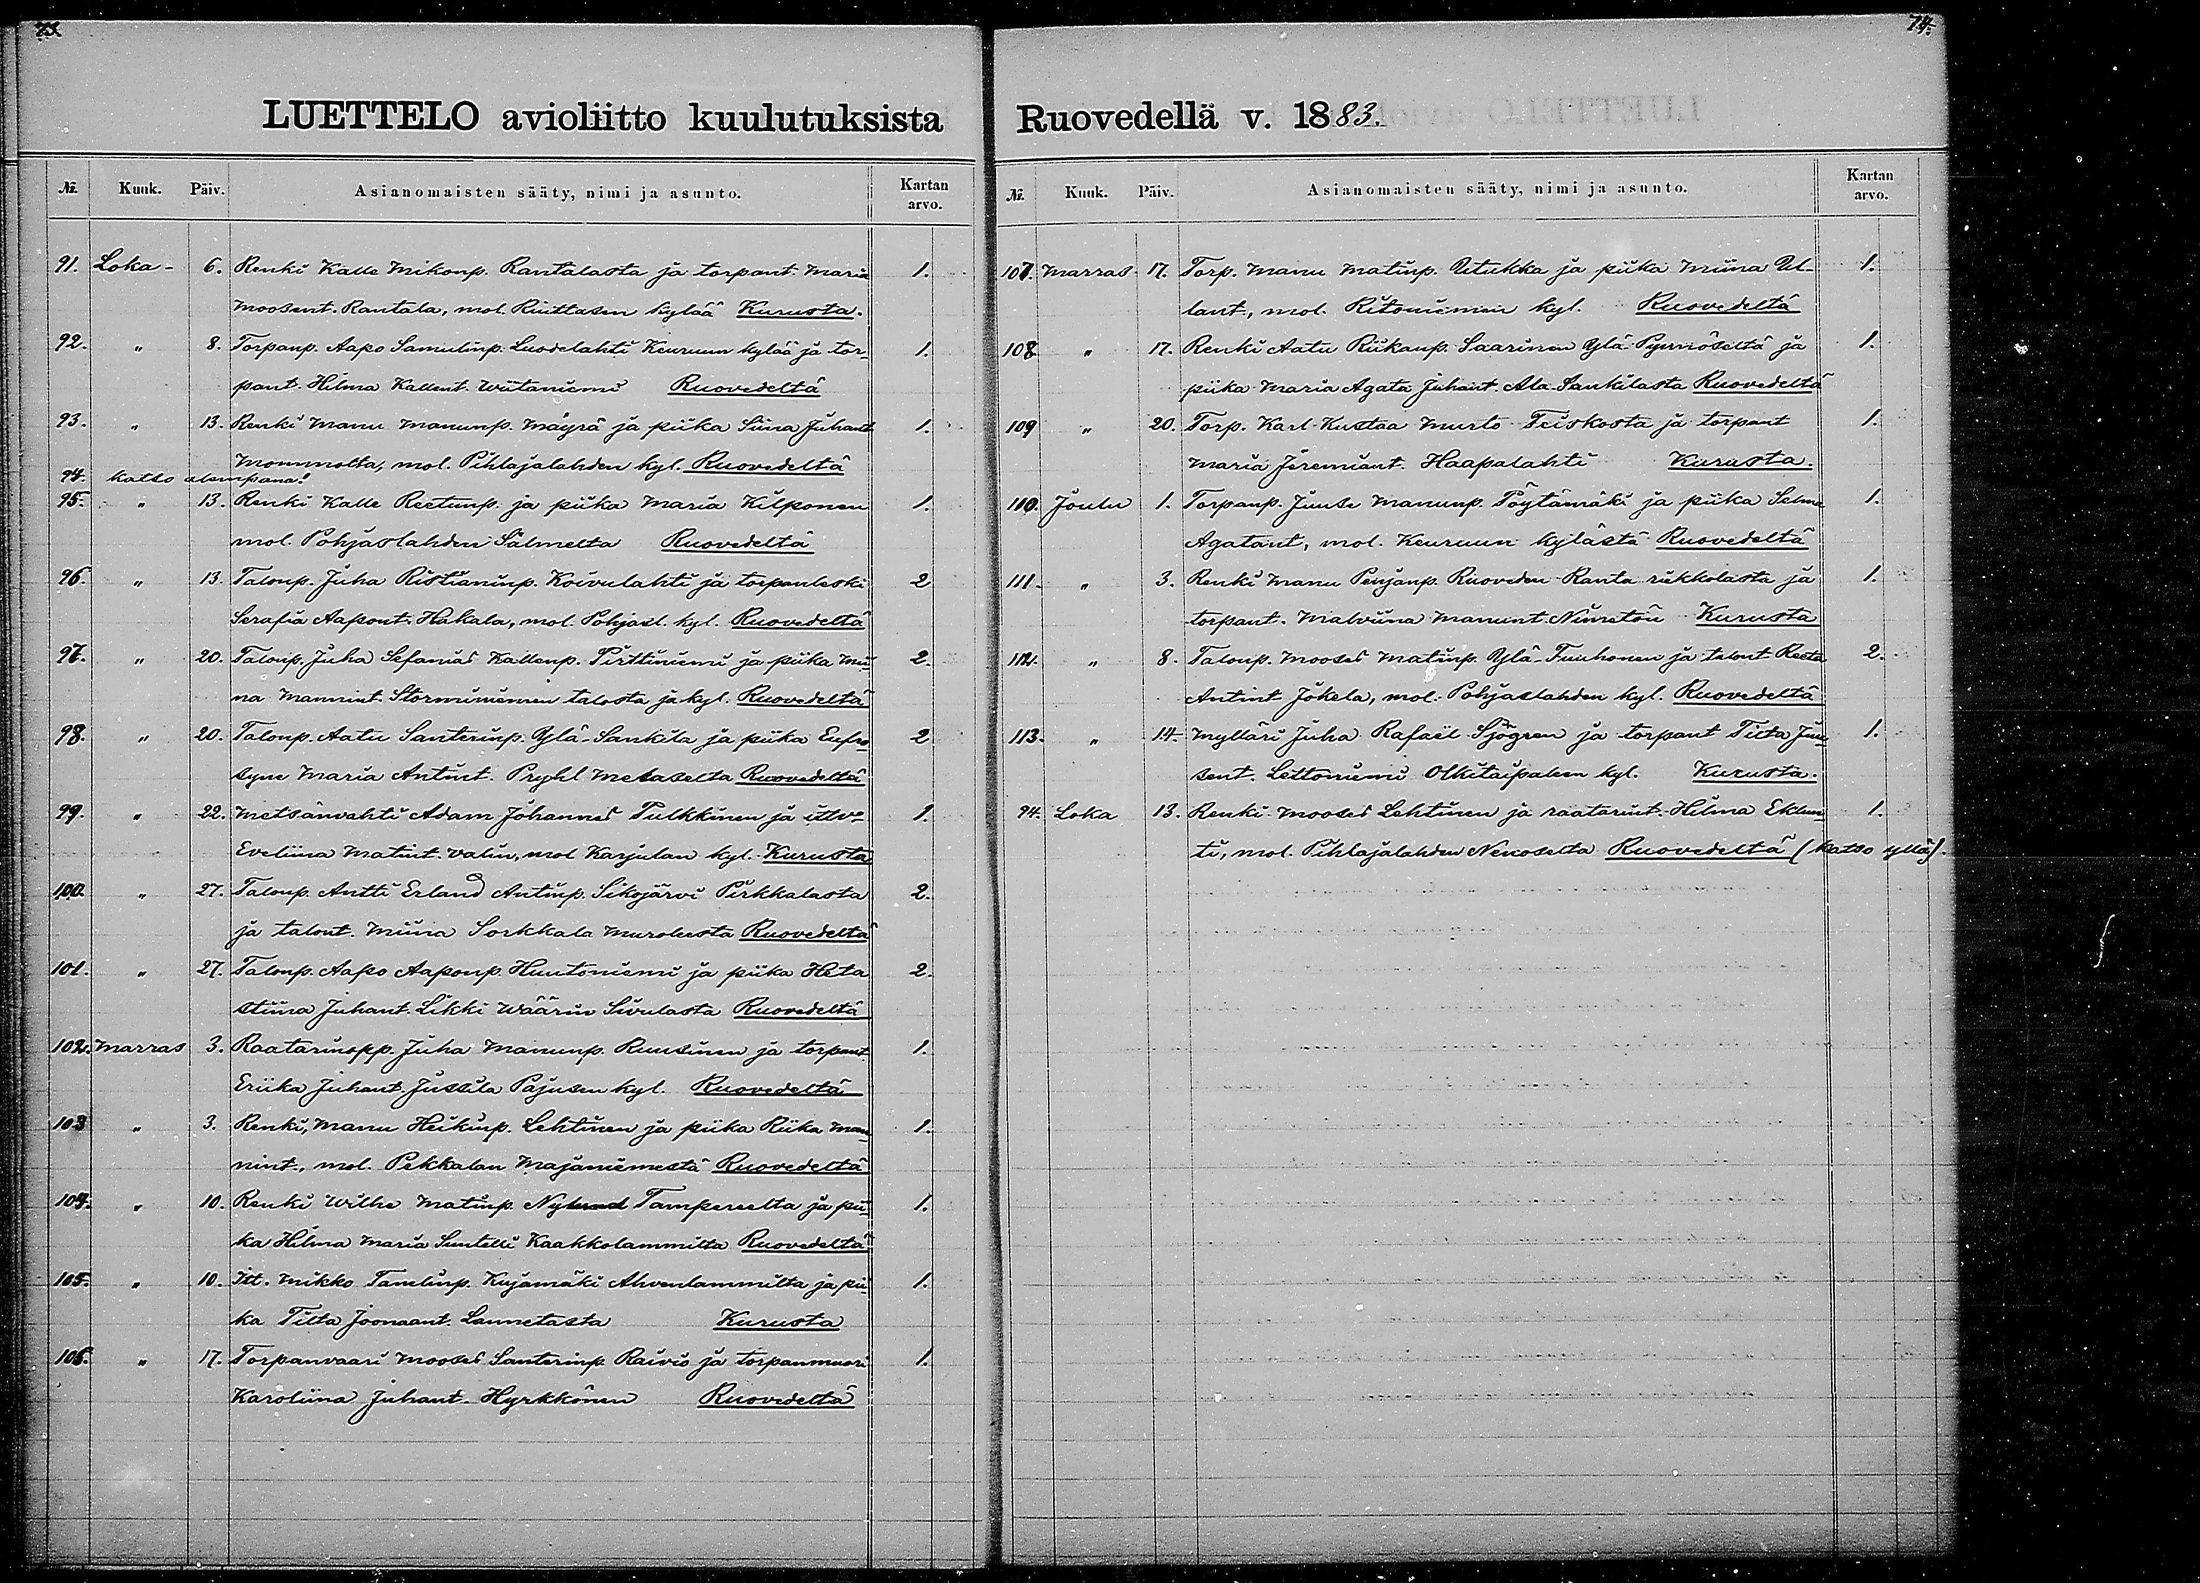 73.
LUETTELO avioliitto kuulutuksista
№. Kuuk. Päiv. Asianomaisten sääty, nimi ja asunto. Kartan arvo.
91. Loka- 6. Renki Kalle Mikonp. Rantalasta ja torpant. Maria 1.
Moosent. Rantala, mol. Ruittasen kylää Kurusta.
92. " 8. Torpanp. Aapo Samulinp. Luodelahti Keuruun kylää ja tor- 1.
pant. Hilma Kallent. Wiitaniemi Ruovedeltä
93. " 13. Renki Manu Manunp. Mäyrä ja piika Siina Juhant 1.
Mommolta, mol. Pihlajalahden kyl. Ruovedeltä
94. katso alempana!
95. " 13. Renki Kalle Reetunp. ja piika Maria Kilponen 1.
mol. Pohjaslahden Salmelta Ruovedeltä
96. " 13. Talonp. Juha Ristianinp. Koivulahti ja torpanleski 2
Serafia Aapont. Hakala, mol. Pohjasl. kyl. Ruovedeltä
97. " 20. Talonp. Juha Sefanias Kallenp. Pirttiniemi ja piika Mii- 2.
na Mannint. Storminiemen talosta ja kyl. Ruovedeltä
98. " 20. Talonp. Aatu Santerinp. Ylä-Sankila ja piika Eufro- 2
syne Maria Antint. Pryhl Metaselta Ruovedeltä
99. " 22. Metsänvahti Adam Johannes Tulkkinen ja ittvn 1.
Eveliina Matint. Valin, mol Karjulan kyl. Kurusta
100. " 27. Talonp. Antti Erland Antinp. Sikojärvi Pirkkalasta 2.
ja talont. Miina Sorkkala Muroleesta Ruovedeltä
101. " 27. Talonp. Aapo Aaponp. Huutoniemi ja piika Heta 2.
Stiina Juhant. Likki Wäärin Sivulasta Ruovedeltä
102. Marras 3. Raatarinopp. Juha Manunp. Ruusinen ja torpant 1.
Eriika Juhant. Jussila Pajusen kyl. Ruovedeltä
103 " 3. Renki, Manu Heikinp. Lehtinen ja piika Riika Man- 1.
nint., mol. Pekkalan Majaniemestä Ruovedeltä
104. " 10. Renki Wilhe Matinp. Nylund Tampereelta ja pii- 1.
ka Hilma Maria Suntelli Kaakkolammilta Ruovedeltä
105. " 10. Itt. Mikko Tanelinp. Kujamäki Ahvenlammilta ja pii- 1.
ka Tilta Joonaant. Lannetasta Kurusta
106. " 17. Torpanvaari Mooses Santerinp. Raivio ja torpanmuori 1.
Karoliina Juhant. Hyrkkönen Ruovedeltä
74.
Ruovedellä v. 1883.
№. Kuuk. Päiv. Asianomaisten sääty, nimi ja asunto. Kartan arvo.
107. Marras 17. Torp. Manu Matinp. Utukka ja piika Miina Ul- 1.
lant., mol. Ritoniemen kyl. Ruovedeltä
108 " 17. Renki Aatu Riikanp. Saarinen Ylä-Pynnöseltä ja 1.
piika Maria Agata Juhant. Ala-Sankilasta Ruovedeltä
109 " 20. Torp. Karl Kustaa Murto Teiskosta ja torpant 1.
Maria Jeremiant. Haapalahti Kurusta.
110. Joulu 1. Torpanp. Juuse Manunp. Pöytämäki ja piika Selma 1.
Agatant, mol. Keuruun kylästä Ruovedeltä
111. " 3. Renki Manu Penjanp. Ruoveden Ranta riikkolasta ja 1.
torpant. Malviina Manunt. Nimetön Kurusta
112. " 8. Talonp. Mooses Matinp. Ylä-Tuuhonen ja talont Reeta 2.
Antint Jokela, mol. Pohjaslahden kyl. Ruovedeltä
113. " 14. Mylläri Juha Rafaël Sjögren ja torpant Tilta Juu- 1.
sent. Lettoniemi Olkitaipaleen kyl. Kurusta.
94. Loka 13. Renki Mooses Lehtinen ja raatarint. Hilma Eklun- 1.
ti, mol. Pihlajalahden Neroselta Ruovedeltä (katso yllä).